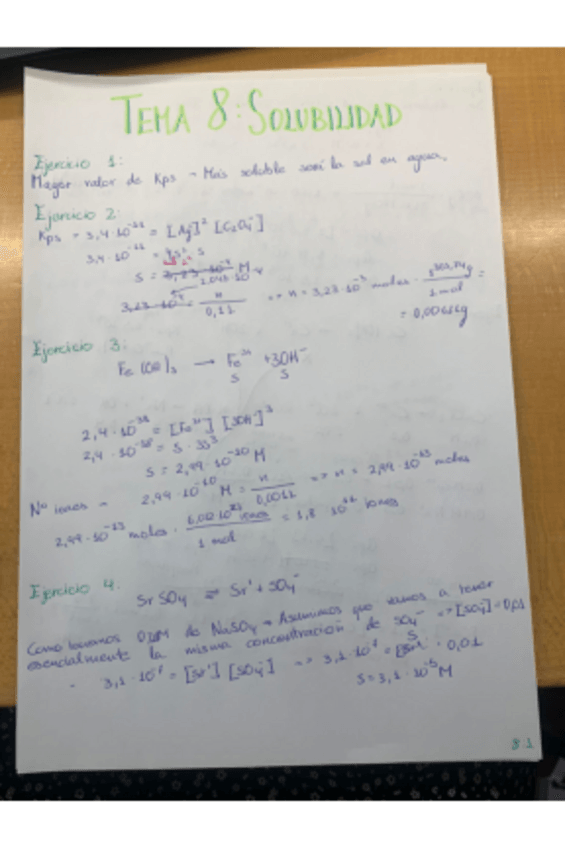 TEMA 8: SOLUBILIDAD
Ejercicio 1:
Mayor valor de Kps → Mas soluble será la sal en agua.
Ejercicio 2:
Kps = 3,4·10⁻¹¹ = [Ag]² [C₂O₄⁻]
3,4·10⁻¹¹ = · S
S = M
= n / 0,1L => n = 3,23·10⁻⁵ moles · g / 1 mol =
= 0,0065g
Ejercicio 3:
Fe(OH)₃ → Fe³⁺ + 3OH⁻
S S
2,4·10⁻³⁸ = [Fe³⁺] [3OH]³
2,4·10⁻³⁸ = S · 3S³
S = 2,99·10⁻¹⁰ M
Nº iones → 2,99·10⁻¹⁰ M = n / 0,001L => n = 2,99·10⁻¹³ moles
2,99·10⁻¹³ moles · 6,02·10²³ iones / 1 mol = 1,8 10¹¹ iones
Ejercicio 4:
SrSO₄ ⇌ Sr⁺ + SO₄⁻
Como tenemos 0,01M de NaSO₄ → Asumimos que vamos a tener
esencialmente la misma concentración de SO₄⁻ => [SO₄] = 0,01
- 3,1·10⁻⁷ = [Sr⁺] [SO₄⁻] => 3,1·10⁻⁷ = · 0,01
S = 3,1·10⁻⁵ M
8.1